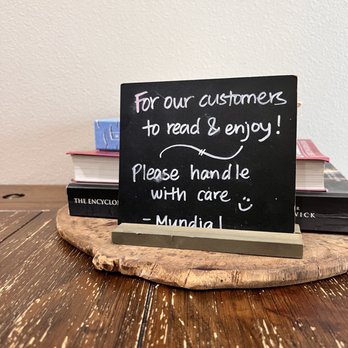 For our customers
to read & enjoy!
Please handle
with care
- Mundial
THE ENCYCLO
WICK